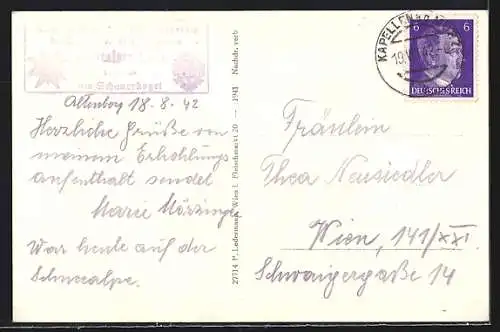 am Scheuerkogel
Altenberg 18.8.42
Herzliche Grüße von
meinem Erholungs
aufenthalt sendet
Marie
War heute auf der
Schneealpe.
27114 P. Ledermann, Wien I. Fleischmarkt 20 — 1941 Nachdr. verb
KAPELLEN
6 6
DEUTSCHES REICH
Fräulein
Thea Neusiedler
Wien, 141/XXI.
Schwaigergaße 14